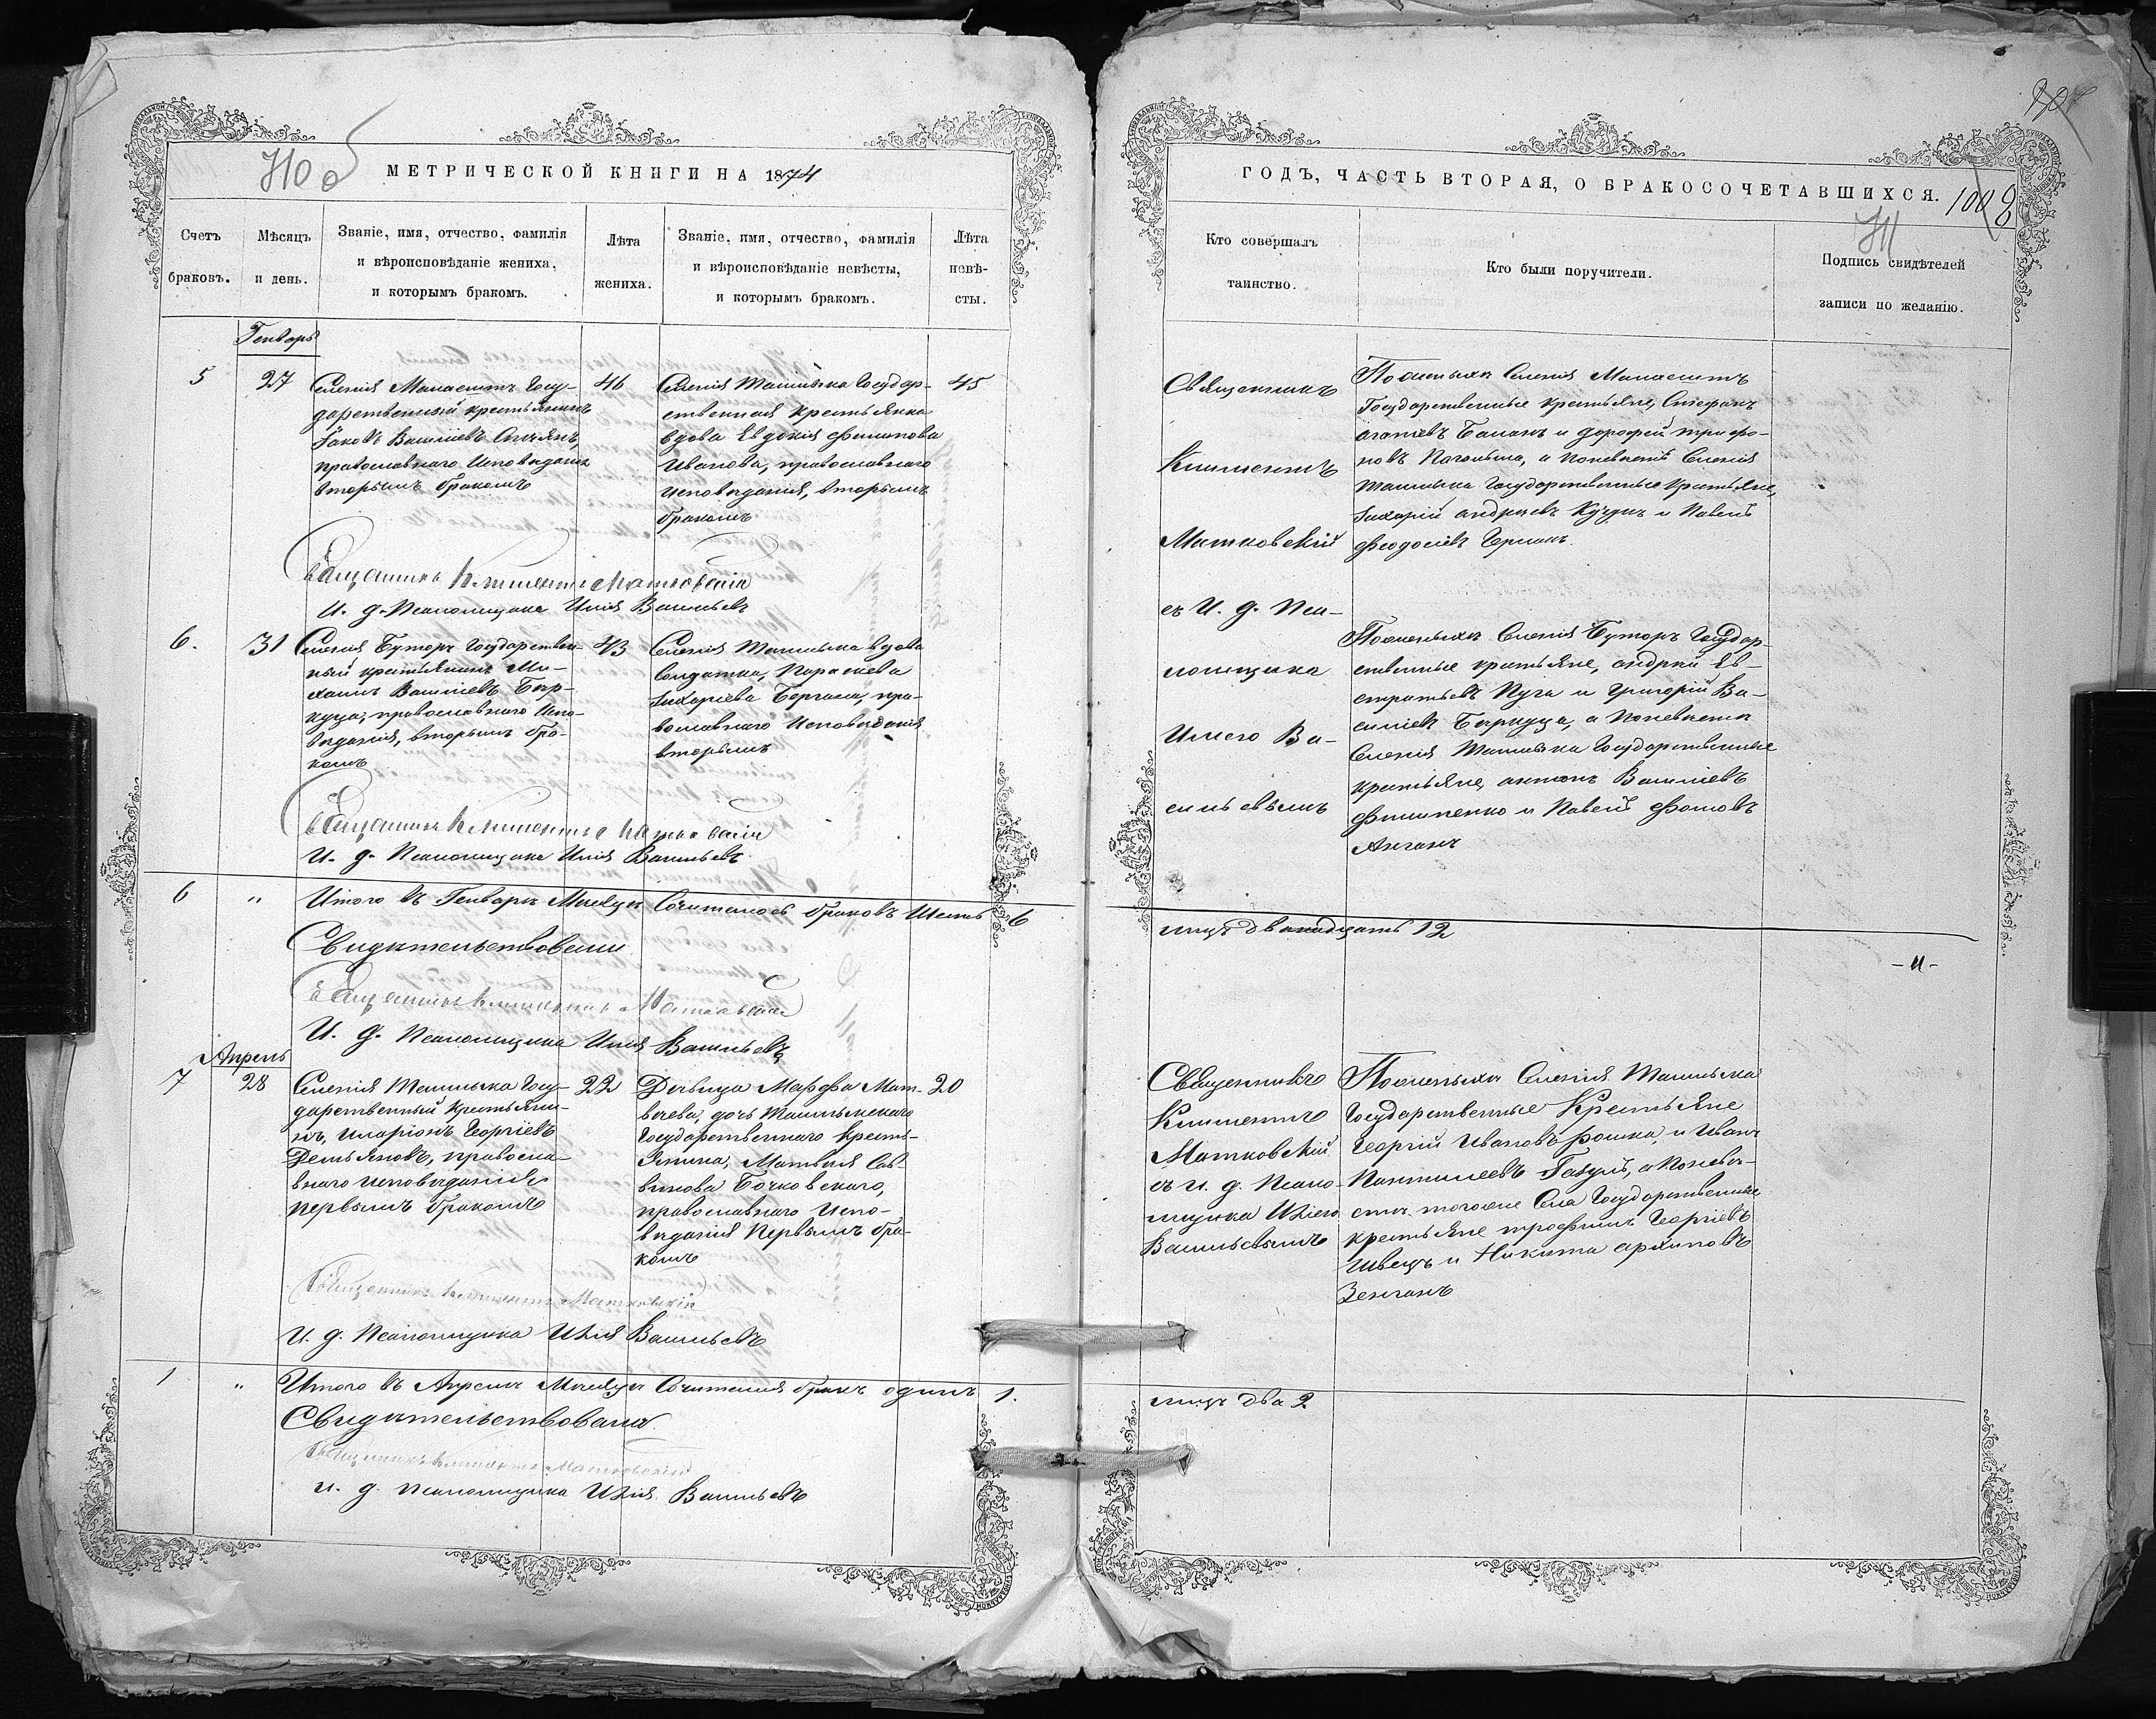 МЕТРИЧЕСКОЙ КНИГИ НА 1874
Счетъ браковъ.
Мѣсяцъ и день.
Званіе, имя, отчество, фамилія
и вѣроисповѣданіе жениха,
и которымъ бракомъ.
Лѣта
жениха.
Званіе, имя, отчество, фамилія
и вѣроисповѣданіе невѣсты,
и которымъ бракомъ.
Лѣта
невѣ-
сты.
Генварь
5
27
Селенія Манаситъ Госу-
дарственный крестьянинъ
Іаковъ Василіевъ
православнаго исповѣданія
вторымъ бракомъ
46
Селенія Ташлыка Государ-
ственная крестьянка
вдова Евдокія Филипова
Иванова, православнаго
исповѣданія, вторымъ
бракомъ
45
Священникъ Климентъ Матковскій
И. д. Псаломщика Илія Васильевъ
6.
31
Селенія Буторъ Государствен-
ный крестьянинъ Ми-
хаилъ Василіевъ Бър-
куца, православнаго испо-
вѣданія, вторымъ бра-
комъ
43
Селенія Ташлыка вдова
солдатка, Параскева
Захаріева Боргана, пра-
вославнаго исповѣданія
вторымъ
Священникъ Климентъ Матковскій
И. д. Псаломщика Илія Васильевъ
6 " Итого въ Генварѣ Месяцѣ Сочиталось браковъ шесть 6
Свидѣтельствовали
Священникъ Климентъ Матковскій
И. д. Псаломщика Илія Васильевъ
Апрель
7
28
Селенія Ташлыка Госу-
дарственный крестьяни-
нъ, Иларіонъ Георгіевъ
Демьяновъ, правосла-
внаго исповѣданія
первымъ бракомъ
22
Дѣвица Марфа Мат-
вѣева, дочь Ташлыкскаго
Государственнаго кресть-
янина, Матвѣя Сав-
винова Бочковскаго,
православнаго испо-
вѣданія первымъ бра-
комъ
20
Священникъ Климентъ Матковскій
И. д. Псаломщика Илія Васильевъ
1 " Итого въ Апрелѣ Месяцѣ Сочитался бракъ одинъ 1.
Свидѣтельствовали
Священникъ Климентъ Матковскій
И. д. Псаломщика Илія Васильевъ
ГОДЪ, ЧАСТЬ ВТОРАЯ, О БРАКОСОЧЕТАВШИХСЯ.
Кто совершалъ
таинство.
Кто были поручители.
Подпись свидѣтелей
записи по желанію.
Священникъ
Климентъ
Матковскій
съ И. д. Пса-
ломщика
Иліею Ва-
сильевымъ
По женихѣ Селенія Манаситъ
Государственные крестьяне, Стефанъ
Агапіевъ Баланъ и Дорофей Трифо-
новъ а по невѣстѣ Селенія
Ташлыка Государственные крестьяне,
Захарій Андреевъ Кучукъ и Павелъ
Феодосіевъ Германъ.
По женихѣ Селенія Буторъ Государ-
ственные крестьяне, Андрей Ев-
стратьевъ Пуга и Григорій Ва-
силіевъ Бъркуца, а по невѣстѣ
Селенія Ташлыка Государственные
крестьяне, Антонъ Василіевъ
Филипенко и Павелъ Фомовъ
лицъ двенадцать 12
Священникъ
Климентъ
Матковскій
съ И. д. Псало-
мщика Иліею
Васильевымъ
По женихѣ Селенія Ташлыка
Государственные Крестьяне
Георгій Ивановъ и Иванъ
Пантилеевъ а по невѣ-
стѣ тогоже Села Государственные
крестьяне Трофимъ Георгіевъ
Швецъ и Никита Архиповъ
лицъ два 2